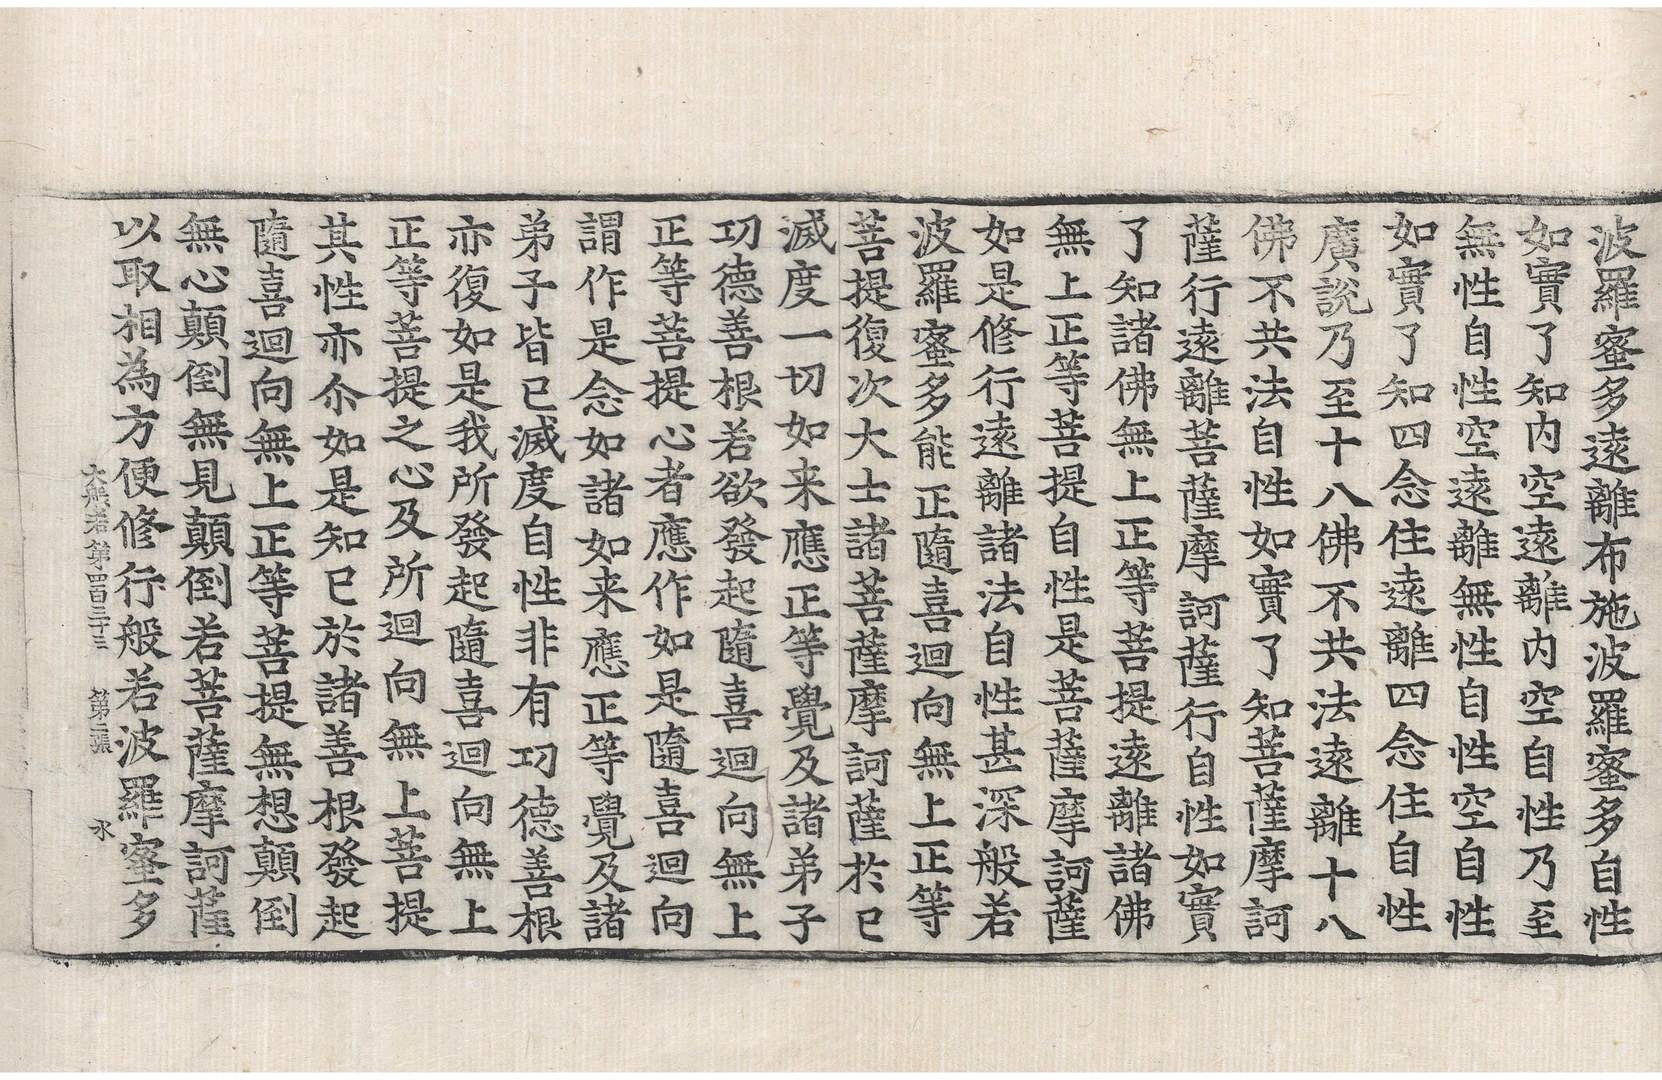 波羅蜜多遠離布施波羅蜜多自性
如實了知内空遠離内空自性乃至
無性自性空遠離無性自性空自性
如實了知四念住遠離四念住自性
廣說乃至十八佛不共法遠離十八
佛不共法自性如實了知菩薩摩訶
薩行遠離菩薩摩訶薩行自性如實
了知諸佛無上正等菩提遠離諸佛
無上正等菩提自性是菩薩摩訶薩
如是修行遠離諸法自性甚深般若
波羅蜜多能正隨喜迴向無上正等
菩提復次大士諸菩薩摩訶薩於已
滅度一切如来應正等覺及諸弟子
功德善根若欲發起隨喜迴向無上
正等菩提心者應作如是隨喜迴向
謂作是念如諸如来應正等覺及諸
弟子皆已滅度自性非有功德善根
亦復如是我所發起隨喜迴向無上
正等菩提之心及所迴向無上菩提
其性亦尒如是知已於諸善根發起
隨喜迴向無上正等菩提無想顛倒
無心顛倒無見顛倒若菩薩摩訶薩
以取相為方便修行般若波羅蜜多
大般若第四百三十三 第二張 氷